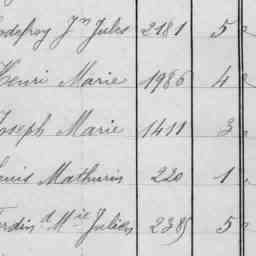 Godefroy Jn Jules 2181 5
Henri Marie 1986 4
Joseph Marie 1411 3
Louis Mathurin 220 1
Ferdind Mie Julien 2385 5